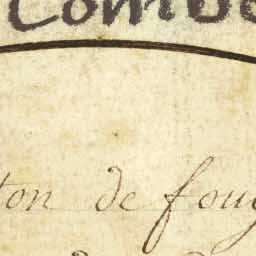 Comb
ton de foug